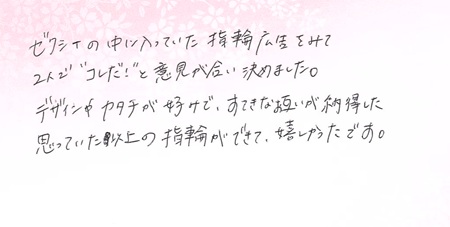 ゼクシィの中に入っていた指輪広告をみて
2人で"コレだ!"と意見が合い決めました。
デザインやカタチが好みで、すてきなお互いが納得した
思っていた以上の指輪ができて、嬉しかったです。